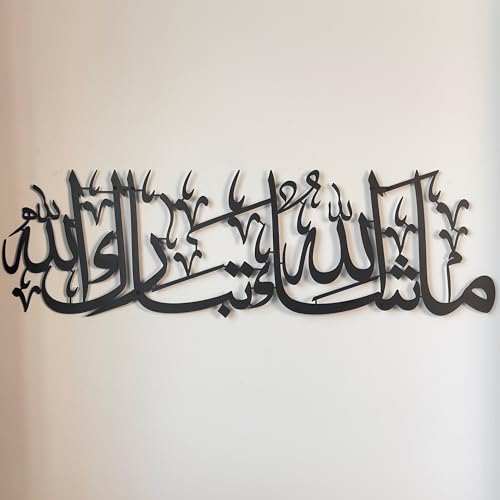 ما شاء الله وتبارك الله